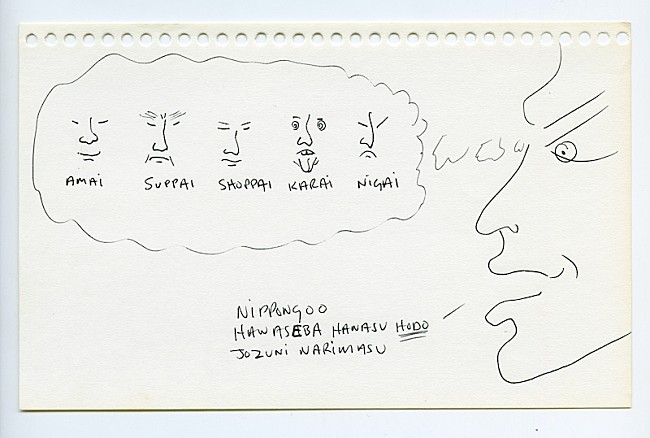 AMAI SUPPAI SHOPPAI KARAI NIGAI
NIPPONGOO
HAWASEBA HANASU HODO
JOZUNI NARIMASU